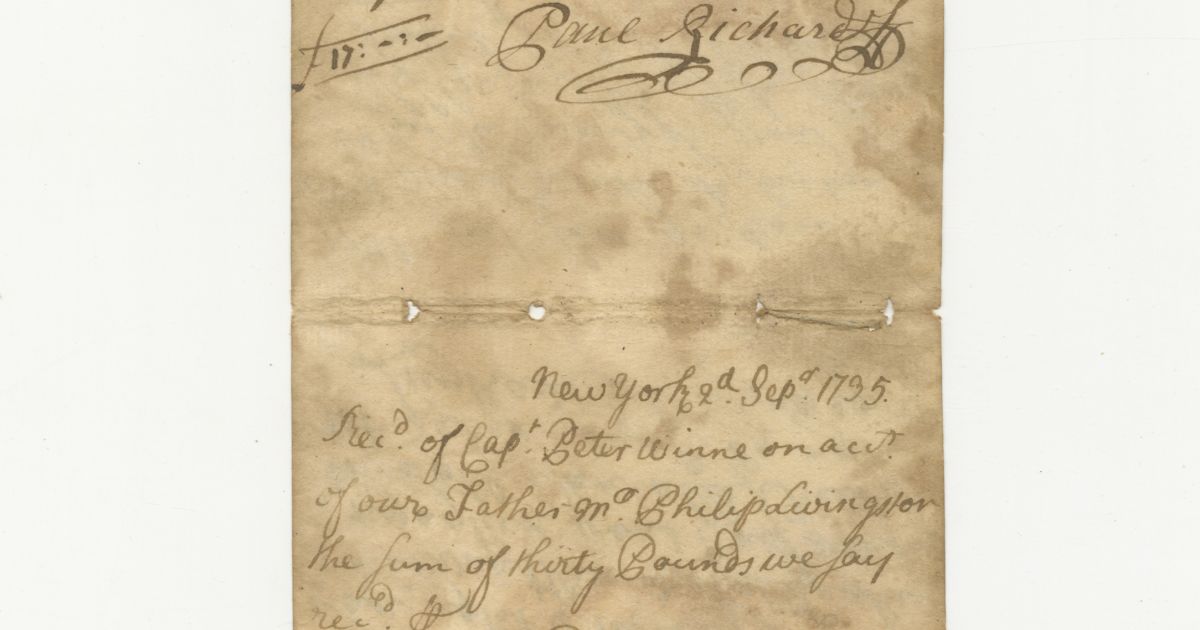 £17:-:- Paul Richard
New York 2d. Sepr. 1735.
Recd. of Capt. Peter Winne on acct.
of our Father Mr. Philip Livingston
the Sum of thirty Pounds we say
recd. P